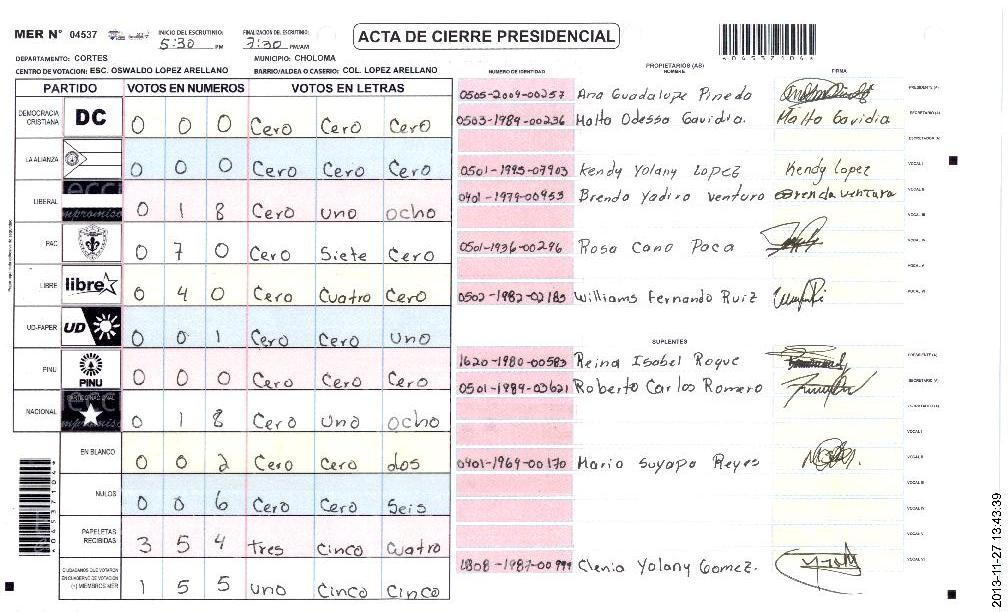 MER N° 04537
INICIO DEL ESCRUTINIO: 5:30 PM
FINALIZACION DEL ESCRUTINIO: 7:30 PM/AM
ACTA DE CIERRE PRESIDENCIAL
DEPARTAMENTO: CORTES
MUNICIPIO: CHOLOMA
CENTRO DE VOTACION: ESC. OSWALDO LOPEZ ARELLANO
BARRIO/ALDEA O CASERIO: COL. LOPEZ ARELLANO
PARTIDO VOTOS EN NUMEROS VOTOS EN LETRAS
DEMOCRACIA CRISTIANA DC 0 0 0 Cero Cero Cero
LA ALIANZA 0 0 0 Cero Cero Cero
LIBERAL 0 1 8 Cero uno ocho
PAC 0 7 0 Cero Siete Cero
LIBRE libre 0 4 0 Cero Cuatro Cero
UD-FAPER UD 0 0 1 Cero Cero uno
PINU PINU 0 0 0 Cero Cero Cero
NACIONAL 0 1 8 Cero uno ocho
EN BLANCO 0 0 2 Cero Cero dos
NULOS 0 0 6 Cero Cero Seis
PAPELETAS RECIBIDAS 3 5 4 tres Cinco Cuatro
CIUDADANOS QUE VOTARON EN CUADERNO DE VOTACION (+) MIEMBROS MER 1 5 5 uno Cinco Cinco
NUMERO DE IDENTIDAD PROPIETARIOS (AS) NOMBRE FIRMA
0505-2009-00257 Ana Guadalupe Pineda PRESIDENTE (A)
0503-1989-00236 Malta Odessa Gavidia. Malta Gavidia SECRETARIO (A)
ESCRUTADOR (A)
0501-1995-07903 Kendy Yolany Lopez Kendy lopez VOCAL I
0401-1979-00953 Brenda Yadira ventura Brenda ventura VOCAL II
VOCAL III
0501-1936-00296 Rosa Cano Paca VOCAL IV
VOCAL V
0502-1982-02185 Williams Fernando Ruiz VOCAL VI
SUPLENTES
1620-1980-00583 Reina Isabel Roque PRESIDENTE (A)
0501-1989-03621 Roberto Carlos Romero SECRETARIO (A)
ESCRUTADOR (A)
VOCAL I
0401-1969-00170 Maria Suyapa Reyes VOCAL II
VOCAL III
VOCAL IV
VOCAL V
Clenia Yolany Gomez. VOCAL VI
2013-11-27 13:43:39